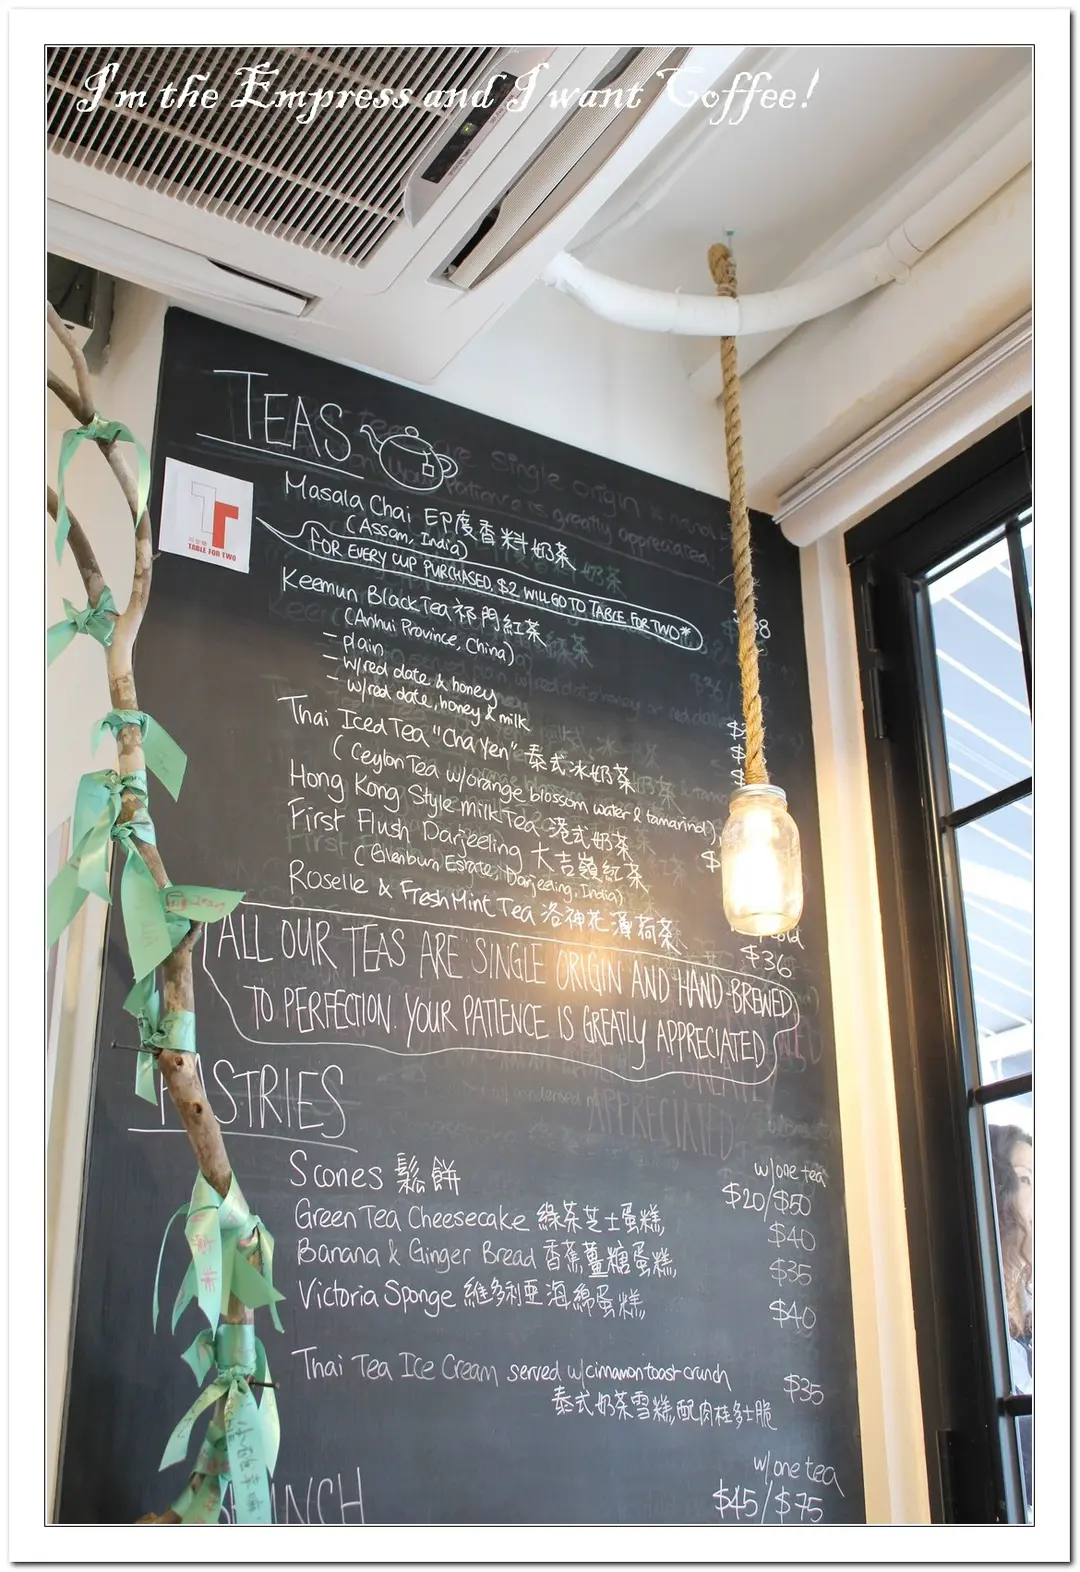 I'm the Empress and I want Coffee!
TEAS
Masala Chai 印度香料奶茶
(Assam, India)
FOR EVERY CUP PURCHASED, $2 WILL GO TO TABLE FOR TWO*
TABLE FOR TWO
Keemun Black Tea 祁門紅茶
(Anhui Province, China)
- plain
- w/red date & honey
- w/red date, honey & milk
Thai Iced Tea "Cha Yen" 泰式冰奶茶
(Ceylon Tea w/orange blossom water & tamarind)
Hong Kong Style milk Tea 港式奶茶
First Flush Darjeeling 大吉嶺紅茶
(Glenburn Estate, Darjeeling, India)
Roselle & Fresh Mint Tea 洛神花薄荷茶
$36
ALL OUR TEAS ARE SINGLE ORIGIN AND HAND-BREWED
TO PERFECTION. YOUR PATIENCE IS GREATLY APPRECIATED
PASTRIES
w/one tea
Scones 鬆餅 $20/$50
Green Tea Cheesecake 綠茶芝士蛋糕 $40
Banana & Ginger Bread 香蕉薑糖蛋糕 $35
Victoria Sponge 維多利亞海綿蛋糕 $40
Thai Tea Ice Cream served w/cinnamon toast crunch $35
泰式奶茶雪糕,配肉桂多士脆
w/one tea
$45/$75